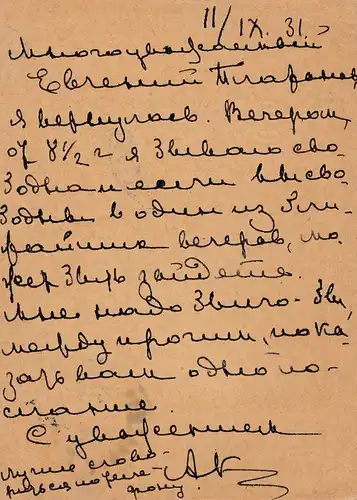 11/IX. 31.
Многоуважаемый
Евгений Платонов.
я вернулась. Вечером,
от 8 1/2 г я бываю сво-
бодна и если вы сво-
бодны в один из бли-
жайших вечеров, мо-
жет быть зайдете.
Мне надо было-бы,
между прочим, пока-
зать вам одно по-
слание.
С уважением
лучше сгово-
риться по теле-
фону.